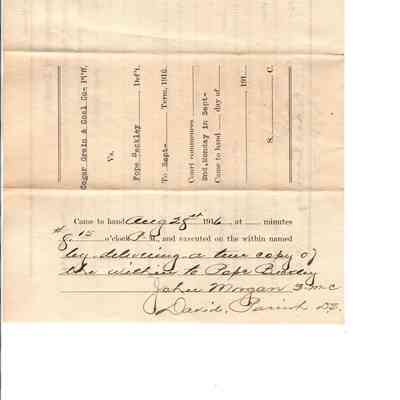 Cogar Grain & Coal Co- Pl'ff.
Vs.
Pope Beckley Def't.
To Sept- Term, 1916.
Court commences
2nd, Monday in Sept-
Came to hand day of
191
S. C.
Came to hand Aug 28th 1916, at minutes
8.15 o'clock P. M., and executed on the within named
by delivering a true copy of
the within to Pope Beckley
John Morgan S.M.C
David Parish D.S.